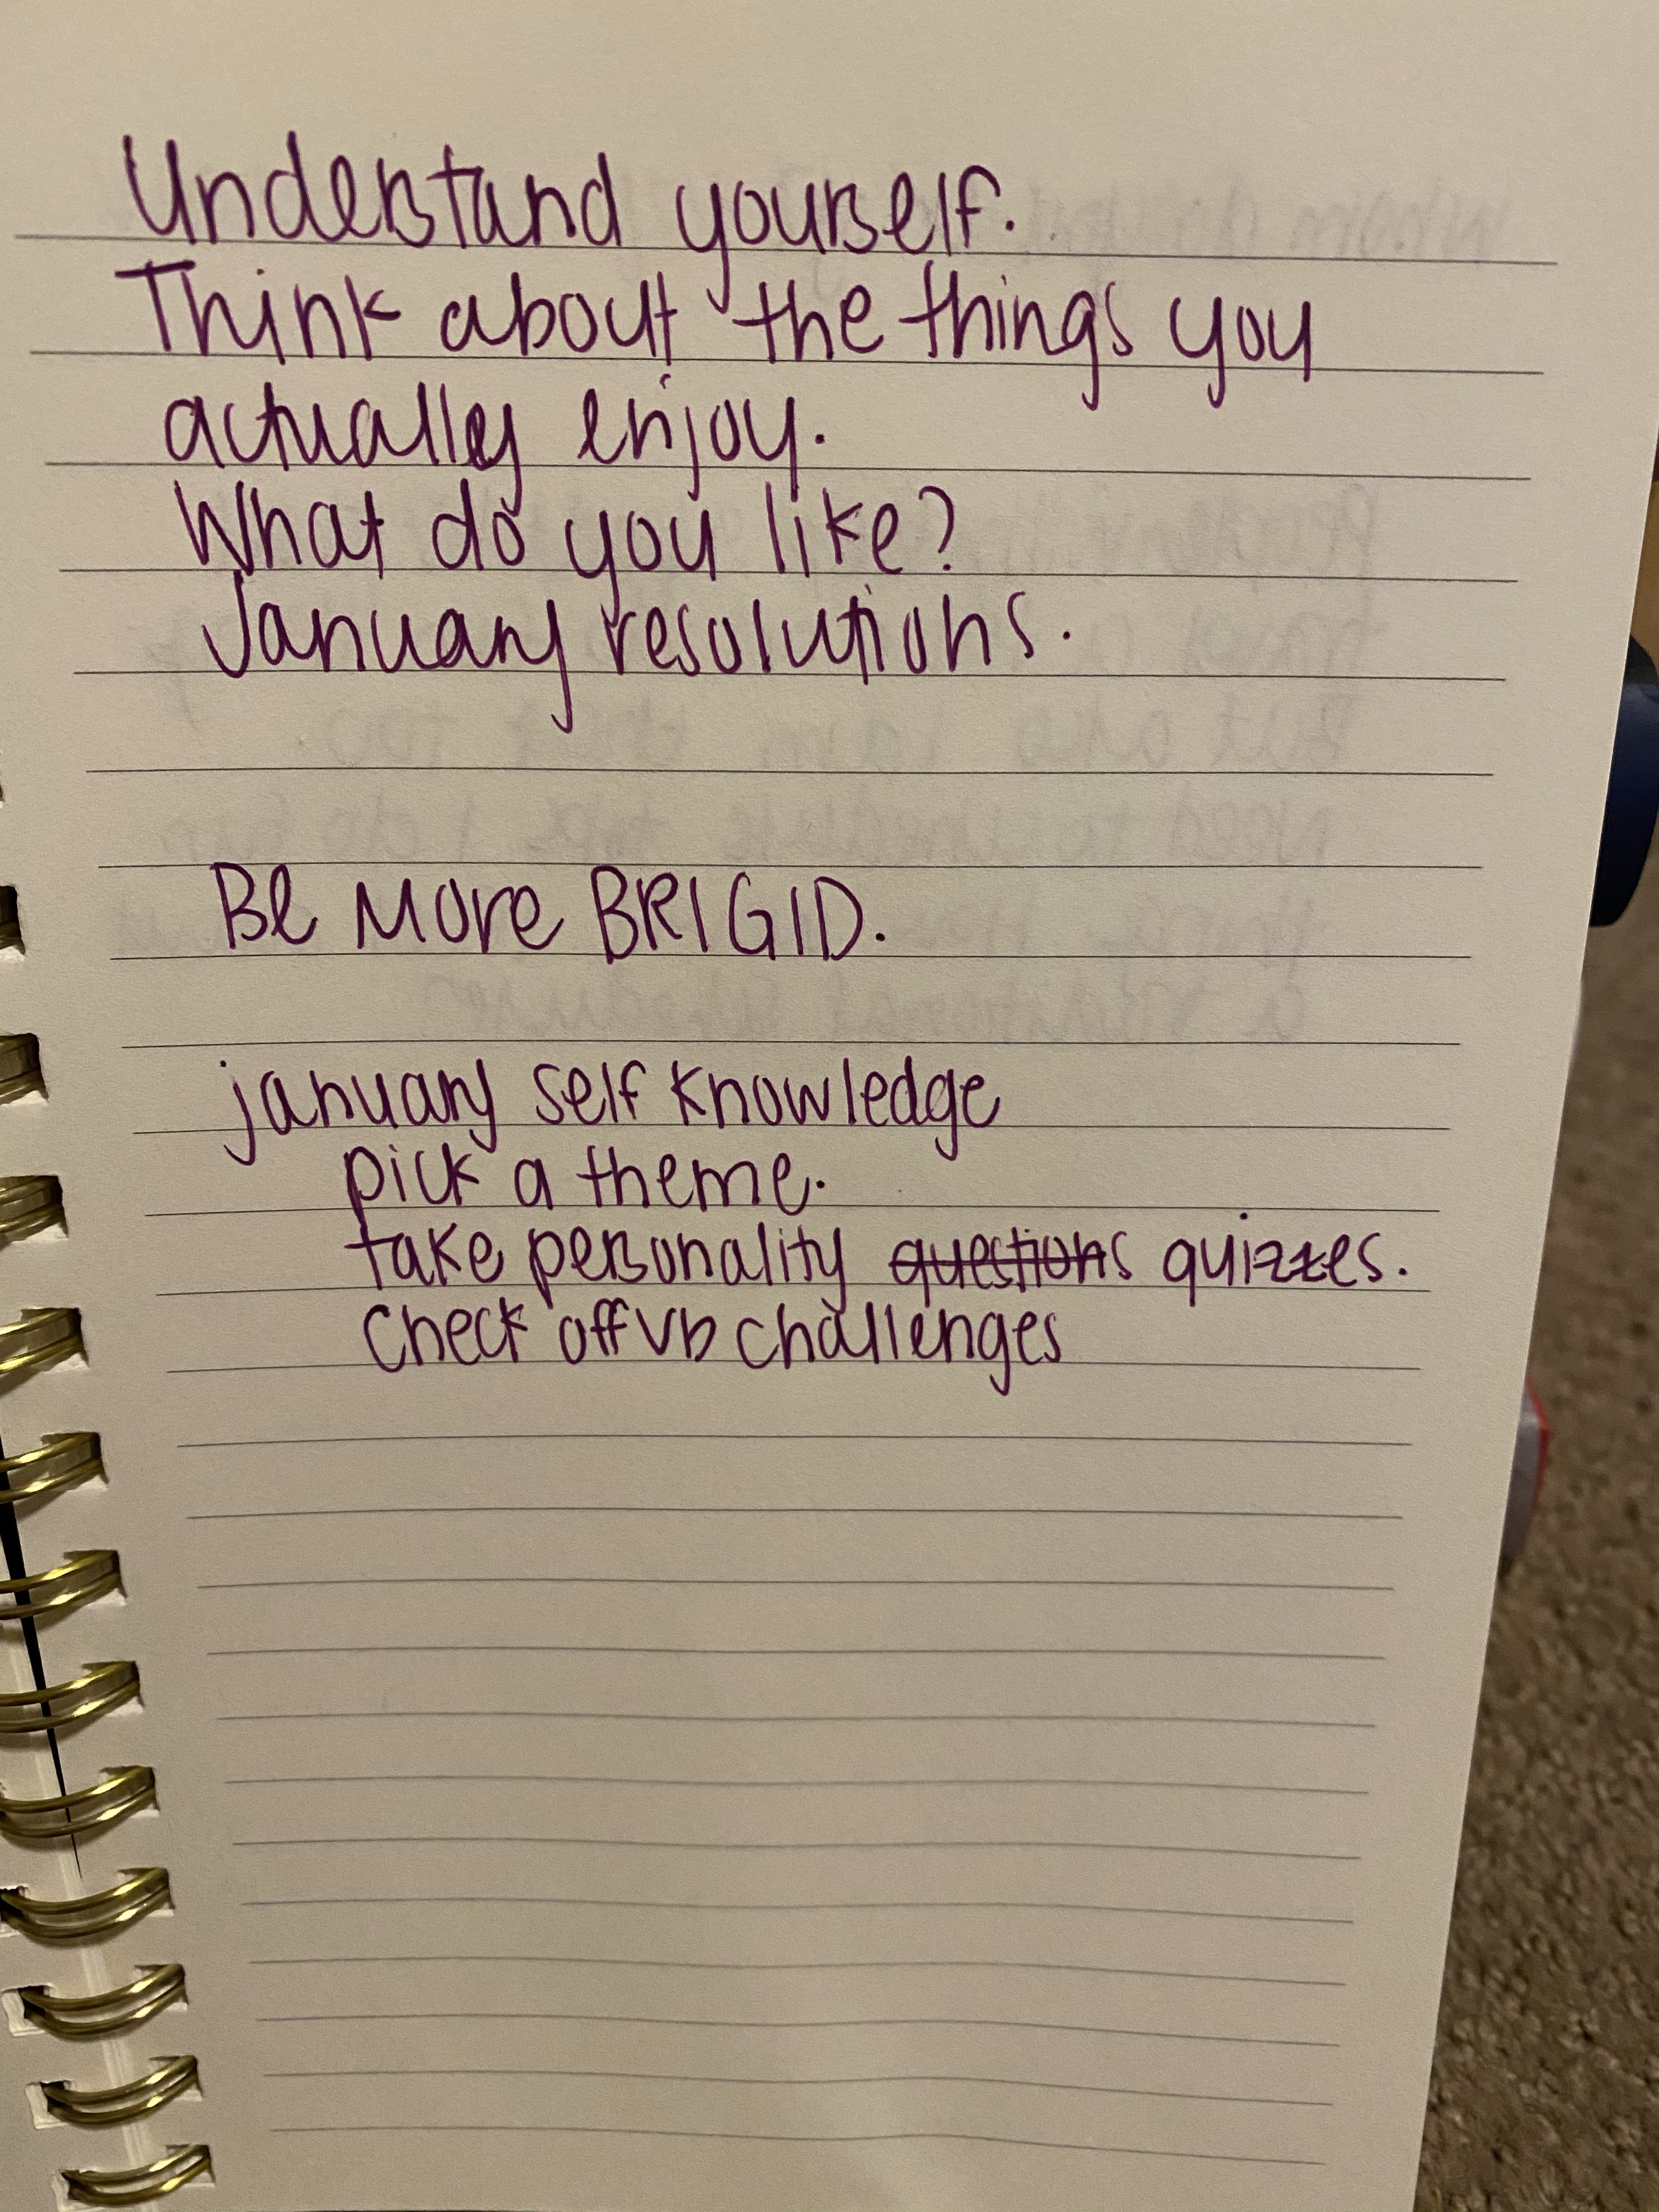 Understand yourself.
Think about the things you
actually enjoy.
What do you like?
January resolutions.
Be More BRIGID.
january self knowledge
pick a theme.
take personality questions quizzes.
Check off vb challenges